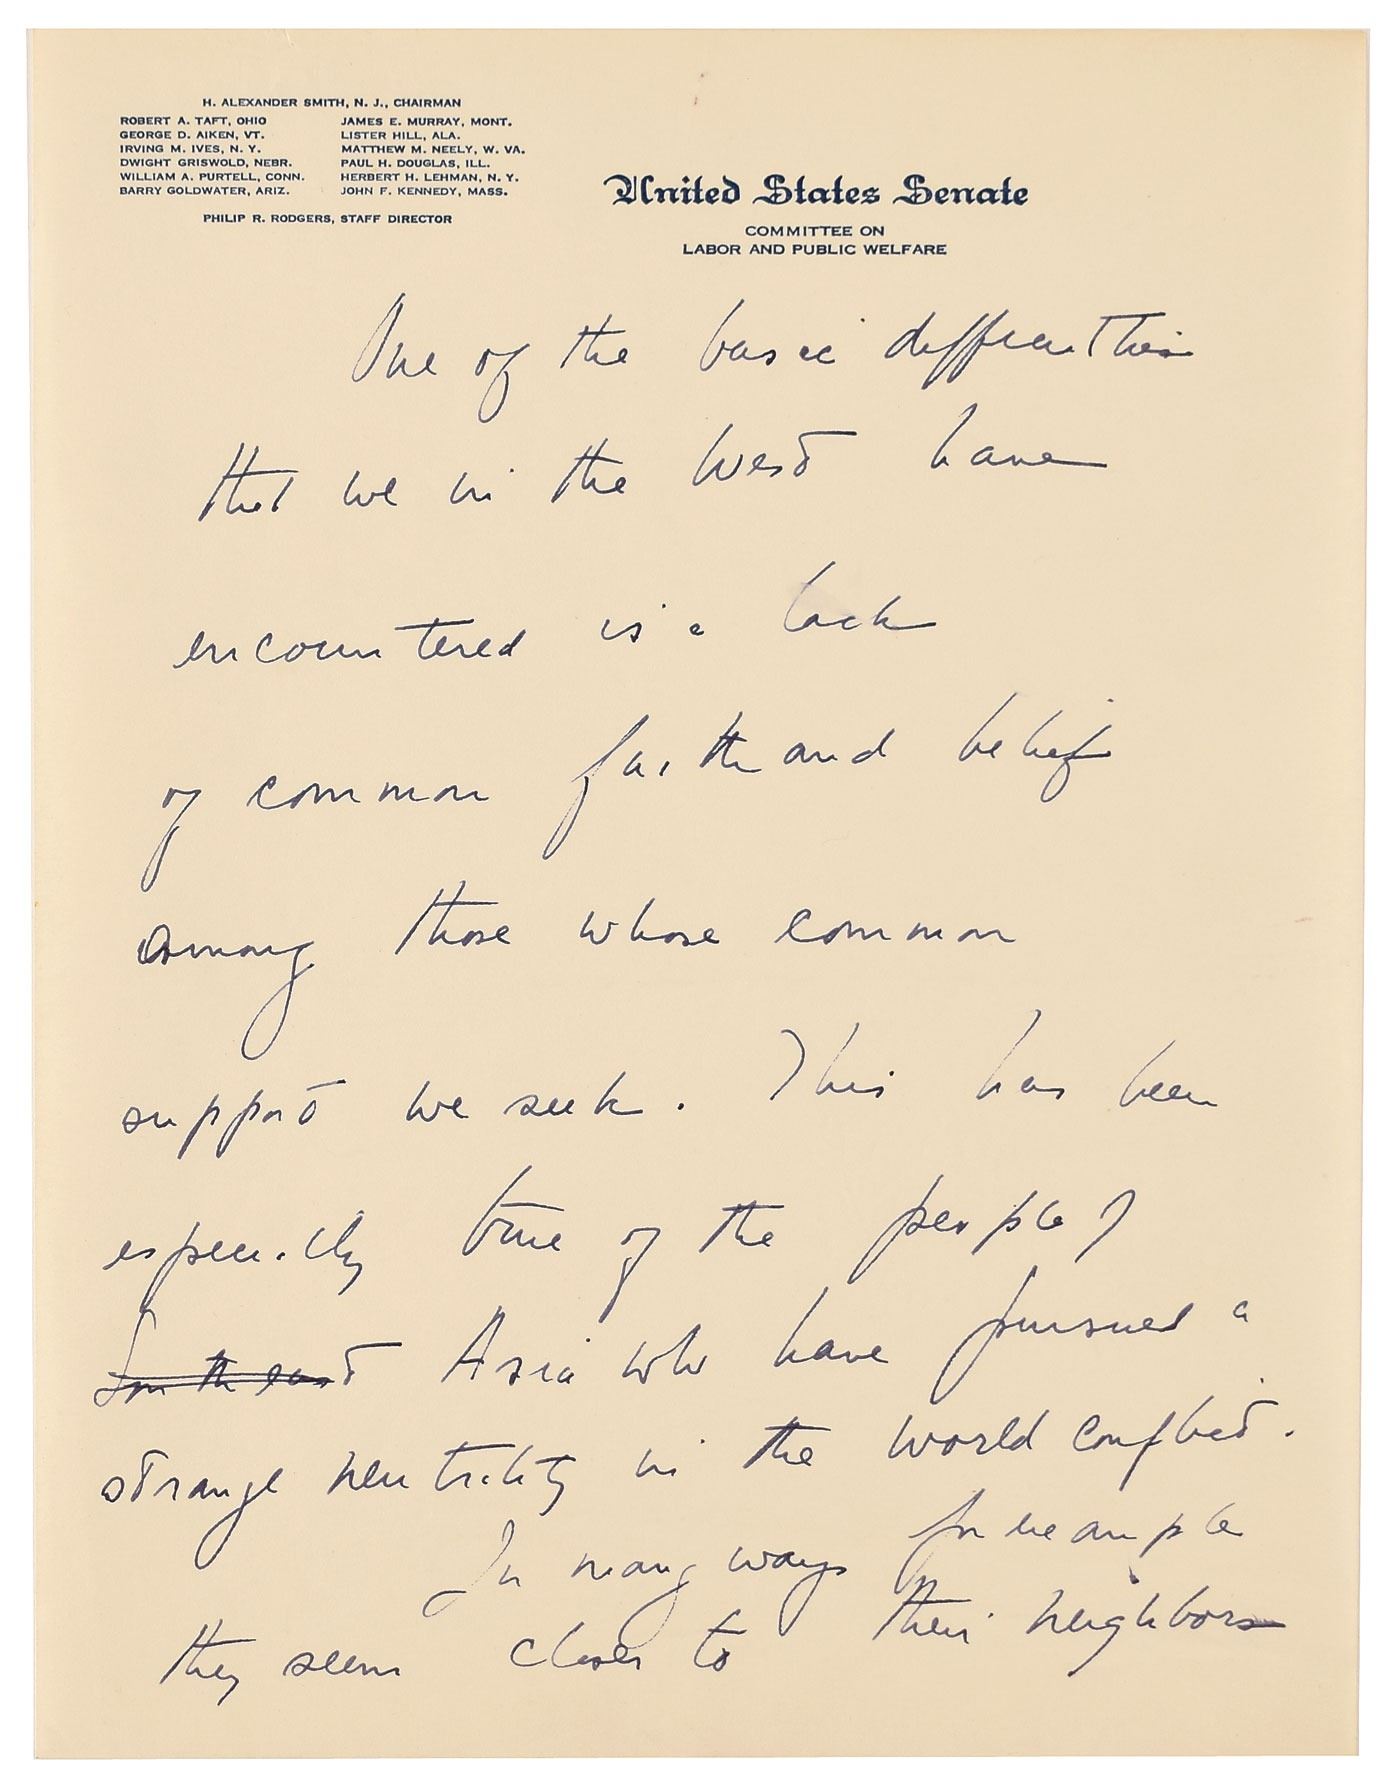 H. ALEXANDER SMITH, N. J., CHAIRMAN
ROBERT A. TAFT, OHIO JAMES E. MURRAY, MONT.
GEORGE D. AIKEN, VT. LISTER HILL, ALA.
IRVING M. IVES, N. Y. MATTHEW M. NEELY, W. VA.
DWIGHT GRISWOLD, NEBR. PAUL H. DOUGLAS, ILL.
WILLIAM A. PURTELL, CONN. HERBERT H. LEHMAN, N. Y.
BARRY GOLDWATER, ARIZ. JOHN F. KENNEDY, MASS.
PHILIP R. RODGERS, STAFF DIRECTOR
United States Senate
COMMITTEE ON
LABOR AND PUBLIC WELFARE
One of the basic
that we in the West have
encountered is a lack
of common faith and belief
among those whose common
support we seek. This has been
especially true of the people of
South east Asia who have pursued a
strange neutrality in the world conflict.
In many ways for example
they seem closer to their neighbors